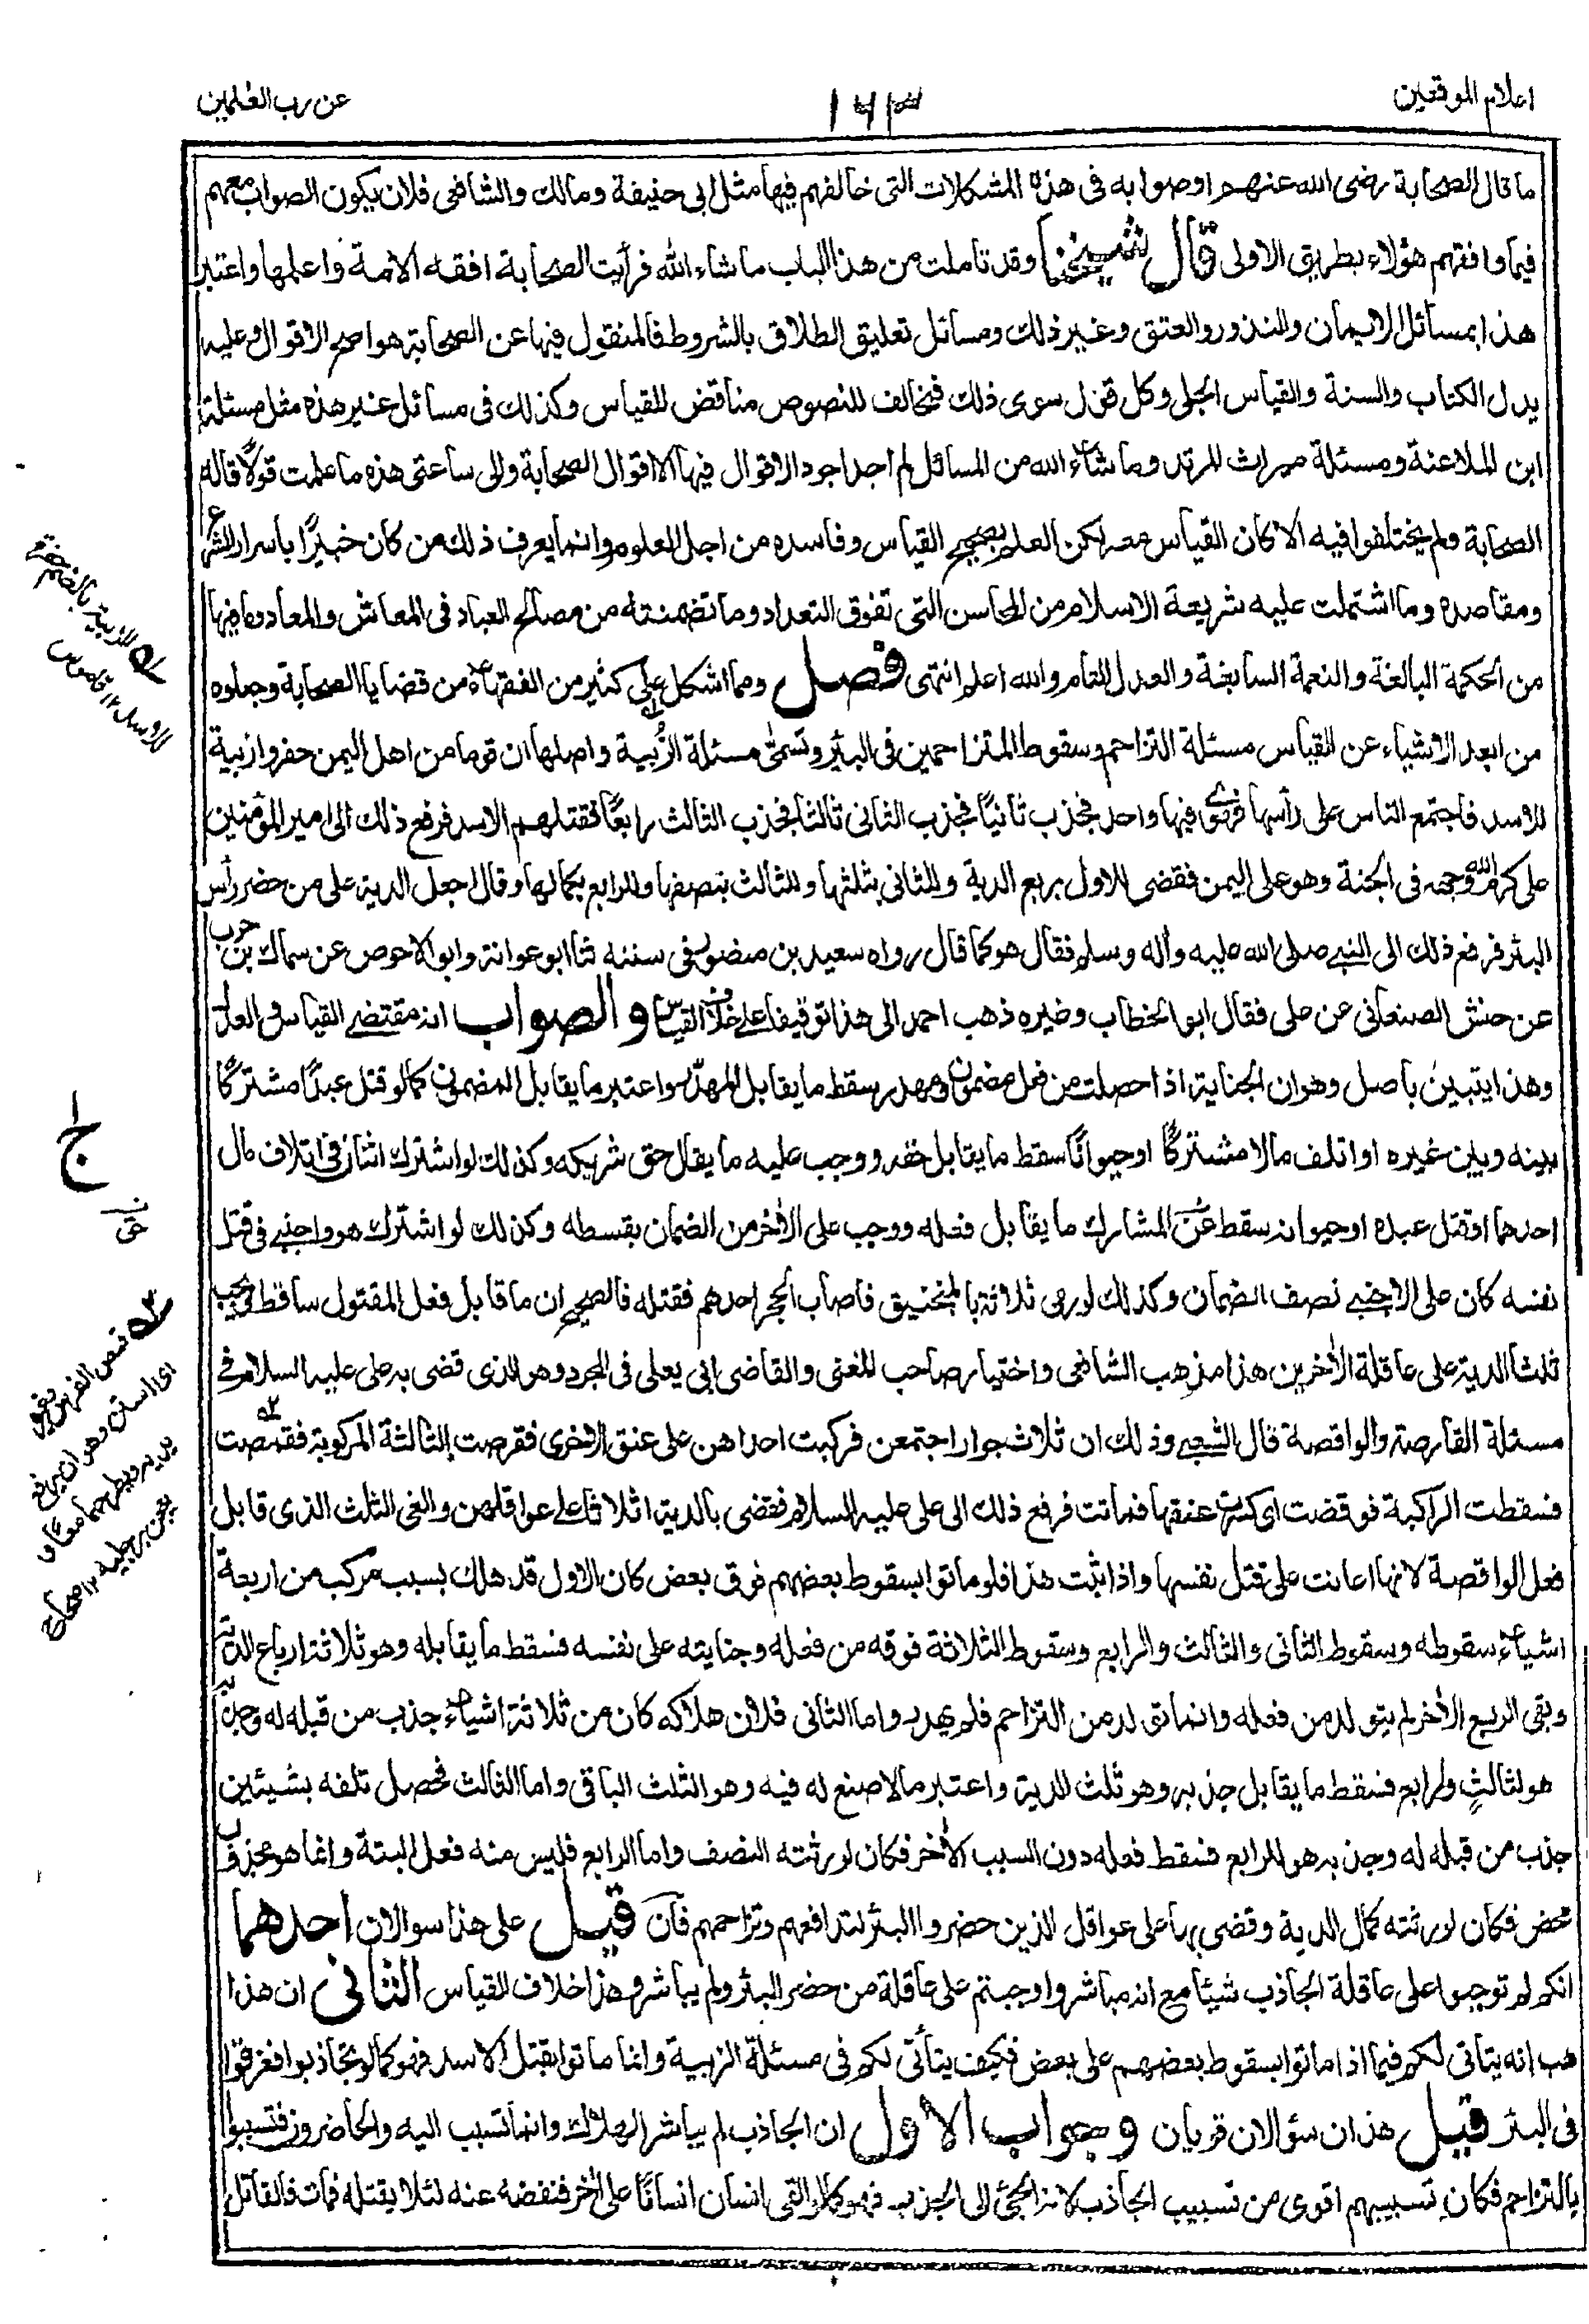 اعلام الموقعين
١٦٣
عن رب العلمين
ما قال الصحابة رضى الله عنهم اوصوابه فى هذه المشكلات التى خالفهم فيها مثل ابى حنيفة ومالك والشافعى فلان يكون الصواب معهم
فيما وافقهم هؤلاء بطريق الاولى قال شيخنا وقد تاملت من هذا الباب ما شاء الله فرأيت الصحابة افقه الامة واعلمها واعتبر
هذا بمسائل الايمان والنذور والعتق وغير ذلك ومسائل تعليق الطلاق بالشروط فالمنقول فيها عن الصحابة هو اصح الاقوال وعليه
يدل الكتاب والسنة والقياس الجلى وكل قول سوى ذلك فمخالف للنصوص مناقض للقياس وكذلك فى مسائل غير هذه مثل مسئلة
ابن الملاعنة ومسئلة ميراث المرتد وما شاء الله من المسائل لم اجد اجود الاقوال فيها الا اقوال الصحابة والى ساعتى هذه ما علمت قولًا قاله
الصحابة ولم يختلفوا فيه الا كان القياس معه لكن العلم بصحيح القياس وفاسده من اجل العلوم وانما يعرف ذلك من كان خبيرًا بأسرار الشرع
ومقاصده وما اشتملت عليه شريعة الاسلام من المحاسن التى تفوق التعداد وما تضمنته من مصالح العباد فى المعاش والمعاد وما فيها
من الحكمة البالغة والنعمة السابغة والعدل التام والله اعلم انتهى فصل ومما اشكل على كثير من الفقهاء من قضايا الصحابة وجعلوه
من ابعد الاشياء عن القياس مسئلة التزاحم وسقوط المتزاحمين فى البئر وتسمى مسئلة الزُبية واصلها ان قوما من اهل اليمن حفروا زبية
للاسد فاجتمع الناس على رأسها فهوى فيها واحد فجذب ثانيًا فجذب الثانى ثالثا فجذب الثالث رابعًا فقتلهم الاسد فرفع ذلك الى امير المؤمنين
على كرم الله وجهه فى الجنة وهو على اليمن فقضى للاول بربع الدية وللثانى بثلثها وللثالث بنصفها وللرابع بكمالها وقال اجعل الدية على من حضر رأس
البئر فرفع ذلك الى النبى صلى الله عليه وآله وسلم فقال هو كما قال رواه سعيد بن منصور فى سننه ثنا ابو عوانة وابو الاحوص عن سماك بن حرب
عن حنش الصنعانى عن على فقال ابو الخطاب وغيره ذهب احمد الى هذا توقيفا على خلاف القياس والصواب انه مقتضى القياس والعدل
وهذا يتبين بأصل وهو ان الجناية اذا حصلت من فعل مضمون ومهدر سقط ما يقابل المهدر واعتبر ما يقابل المضمون كما لو قتل عبدًا مشتركًا
بينه وبين غيره او اتلف مالا مشتركًا او حيوانًا سقط ما يقابل حقه ووجب عليه ما يقابل حق شريكه وكذلك لو اشترك اثنان فى اتلاف مال
احدهما او قتل عبده او حيوانه سقط عن المشارك ما يقابل فعله ووجب على الآخر من الضمان بقسطه وكذلك لو اشترك هو واجنبى فى قتل
نفسه كان على الاجنبى نصف الضمان وكذلك لو رمى ثلاثة بالمنجنيق فاصاب الحجر احدهم فقتله فالصحيح ان ما قابل فعل المقتول ساقط ويجب
ثلثا الدية على عاقلة الآخرين هذا مذهب الشافعى واختيار صاحب المغنى والقاضى ابى يعلى فى المجرد وهو الذى قضى به على عليه السلام فى
مسئلة القارصة والواقصة قال الشعبى وذلك ان ثلاث جوار اجتمعن فركبت احداهن على عنق الاخرى فقرصت الثالثة المركوبة فقمصت
فسقطت الراكبة فوقصت اى كسرت عنقها فماتت فرفع ذلك الى على عليه السلام فقضى بالدية اثلاثا على عواقلهن والغى الثلث الذى قابل
فعل الواقصة لانها اعانت على قتل نفسها واذا ثبت هذا فلو ماتوا بسقوط بعضهم فوق بعض كان الاول قد هلك بسبب مركب من اربعة
اشياء سقوطه وسقوط الثانى والثالث والرابع وسقوط الثلاثة فوقه من فعله وجنايته على نفسه فسقط ما يقابله وهو ثلاثة ارباع الدية
وبقى الربع الآخر لم يتولد من فعله وانما تولد من التزاحم فلم يهدر واما الثانى فلان هلاكه كان من ثلاثة اشياء جذب من قبله له وجذبه
هو لثالثٍ ولرابع فسقط ما يقابل جذبه وهو ثلثا الدية واعتبر مالا صنع له فيه وهو الثلث الباقى واما الثالث فحصل تلفه بشيئين
جذب من قبله له وجذبه هو للرابع فسقط فعله دون السبب الآخر فكان لورثته النصف واما الرابع فليس منه فعل البتة وانما هو مجذوب
محض فكان لورثته كمال الدية وقضى بها على عواقل الذين حضروا البئر لتدافعهم وتزاحمهم فان قيل على هذا سوالان احدهما
انكم لم توجبوا على عاقلة الجاذب شيئًا مع انه مباشر واوجبتم على عاقلة من حضر البئر ولم يباشر وهذا خلاف القياس الثانى ان هذا
هب انه يتأتى لكم فيما اذا ماتوا بسقوط بعضهم على بعض فكيف يتأتى لكم فى مسئلة الزبية وانما ماتوا بقتل الاسد فهو كما لو تجاذبوا فغرقوا
فى البئر قيل هذان سؤالان قويان وجواب الاول ان الجاذب لم يباشر الهلاك وانما تسبب اليه والحاضرون تسببوا
بالتزاحم فكان تسببهم اقوى من تسبيب الجاذب لانه الجئ الى الجذب فهو كما لو القى انسان انسانًا على آخر فنفضه عنه لئلا يقتله فمات فالقاتل
له الزبية بالضم حفرة
للاسد ١٢ قاموس
قمص الفرس
اى استن وهو ان يرفع
يديه ويطرحهما معًا و
يعجن برجليه ١٢ صحاح